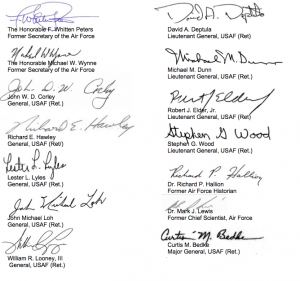 The Honorable F. Whitten Peters
Former Secretary of the Air Force
Michael W Wynne
The Honorable Michael W. Wynne
Former Secretary of the Air Force
John D. W. Corley
John W. D. Corley
General, USAF (Ret.)
Richard E. Hawley
Richard E. Hawley
General, USAF (Ret)
Lester L. Lyles
Lester L. Lyles
General, USAF (Ret.)
John Michael Loh
John Michael Loh
General, USAF (Ret.)
William R. Looney, III
General, USAF (Ret.)
David A. Deptula
David A. Deptula
Lieutenant General, USAF (Ret)
Michael M. Dunn
Michael M. Dunn
Lieutenant General, USAF (Ret.)
Robert J. Elder, Jr.
Lieutenant General, USAF (Ret.)
Stephen G Wood
Stephen G. Wood
Lieutenant General, USAF (Ret.)
Richard P. Hallion
Dr. Richard P. Hallion
Former Air Force Historian
Dr. Mark J. Lewis
Former Chief Scientist, Air Force
Curtis M. Bedke
Curtis M. Bedke
Major General, USAF (Ret.)